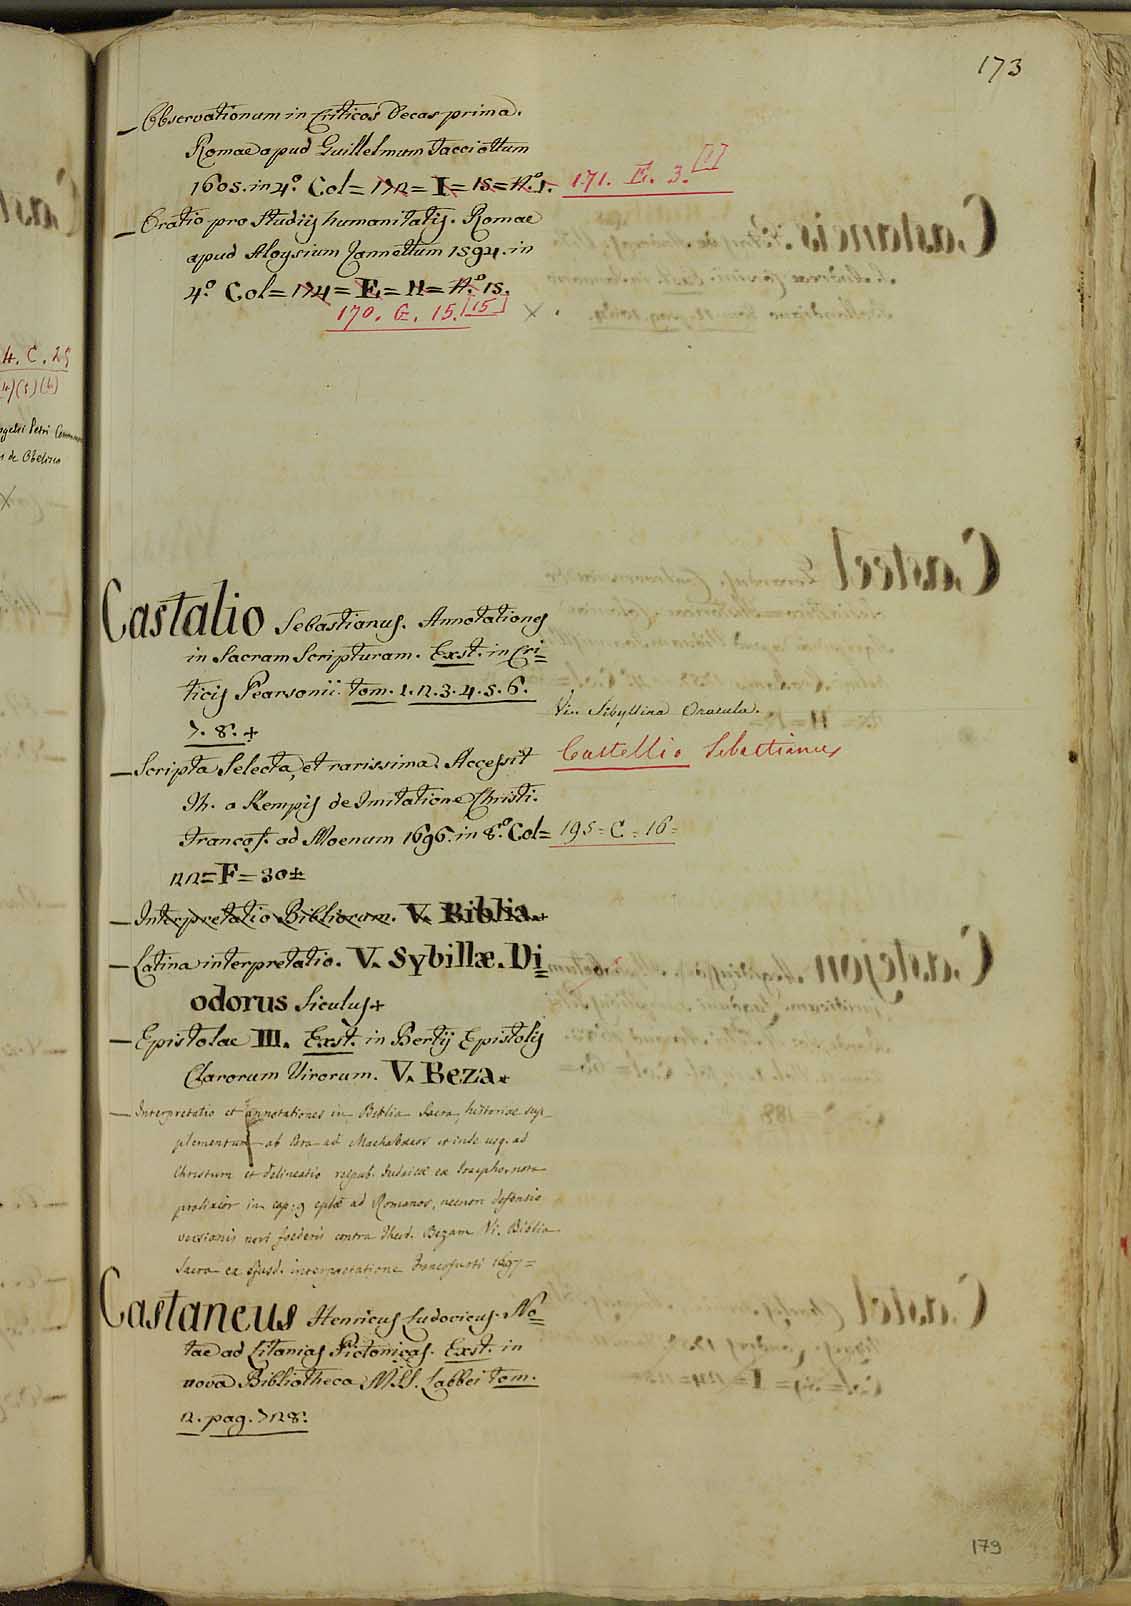 173
— Observationum in Criticos Decas prima.
Romae apud Guillelmum Facciottum
1605. in 4.º Col= 172= I= 15= N.º 1. 171. E. 3.[1]
— Oratio pro Studiis humanitatis. Romae
apud Aloysium Zannettum 1594. in
4.º Col= 174= E= 11= N.º 15.
170. G. 15.[15] X
4. C. 25
Castalio Sebastianus. Annotationes
in Sacram Scripturam. Exst. in Cri=
ticis Pearsonii. tom. 1. 2. 3. 4. 5. 6.
7. 8. +
Vi. Sibyllina Oracula.
— Scripta Selecta, et rarissima. Accessit
Castellio Sebastianus
Th. a Kempis de Imitatione Christi.
Francof. ad Moenum 1696. in 8.º Col= 195= C= 16=
22= F= 30+
— Interpretatio Bibliorum. V. Biblia. +
— Latina interpretatio. V. Sybillæ. Di=
odorus Siculus+
— Epistolae III. Exst. in Bertij Epistolis
Clarorum Virorum. V. Beza+
— Interpretatio et annotationes in Biblia Sacra, historiae sup-
plementum ab Esra ad Machabaeos et inde usq. ad
Christum et delineatio reipub. Judaicæ ex Josepho, nota
prolixior in cap. 9 eplæ ad Romanos, necnon defensio
versionis novi foederis contra Theod. Bezam Vi. Biblia
Sacra ex ejusd. interpretatione Francofurti 1697=
Castaneus Henricus Ludovicus. No=
tae ad Litanias Pictonicas. Exst. in
nova Bibliotheca MSS. Labbei tom.
2. pag. 728.
179